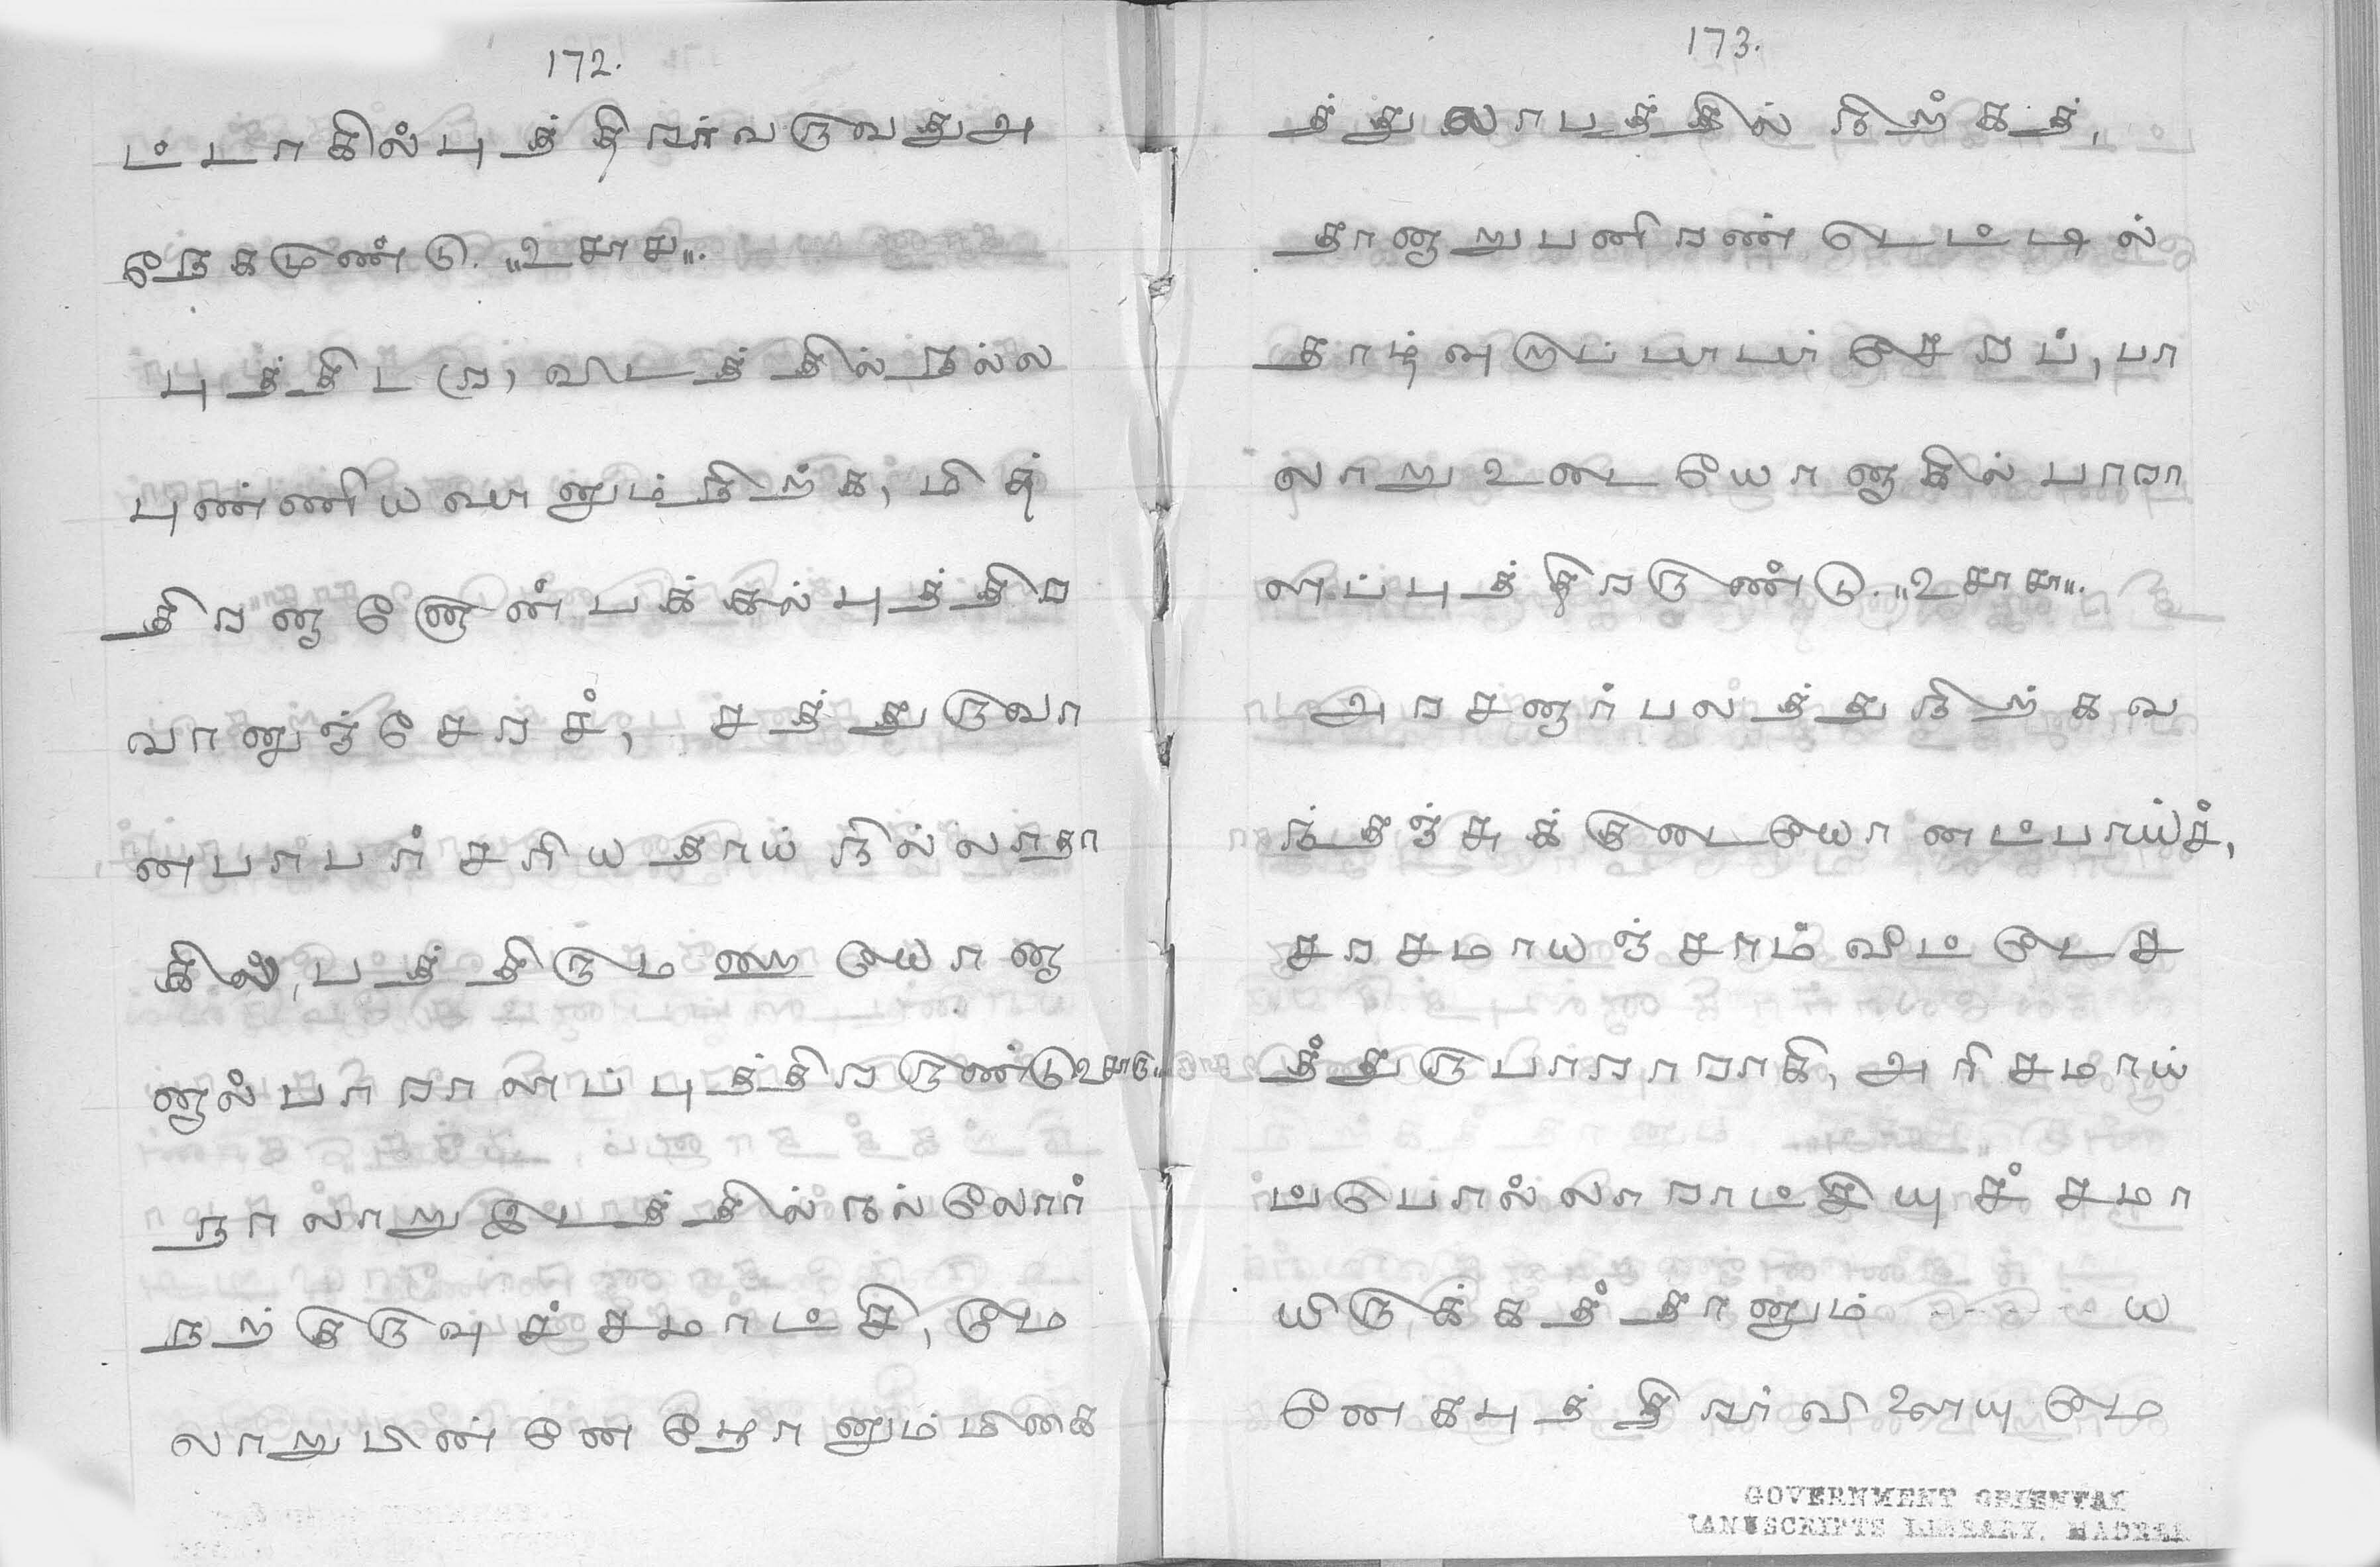 172.
ட்டாகில்புத்திரர்வருவதுஅ
நேகமுண்டு. ,,உசாச,,.
புத்திட (ற) விடத்தில்நல்ல
புண்ணியவானும்நிற்க, மித்
திரனனேன்பக்கல்புத்திர
வானுஞ்சேரச், சத்துருவா
னபாபர்சரியதாய்நில்லாதா
கில், பத்திரும னூறு யோனு
னால்பாராளப்புத்திரருண்டு உசாரு,,
நாலாறுஇடத்தில்நல்லோர்
நற்குருவுச்சமாட்சி, மே
லாறுமின்னேநேரானும்மிகை
173.
த்துலாபத்தில்நிற்கத்,
தானூறுபனிரண்டெட்டில்
தாழ்வுறுப்பாபர்சேரப், பா
லாறுஉடையோனாகில்பாரா
ளப்புத்திரருண்டு. ,,உசாசு,,.
அரசனார்பலத்துநிற்கவ
ந்தஞ்சுக்குடையோனட்பாய்ச்,
சரசமாயஞ்சாம்வீட்டேச
த்துருபாராராகி, அரிசமாய்
ட்டுபால்லாராட்சியுச்சமா
யிருக்கத்தானும் ------ ய
னேகபுத்திரர்விளையுமே
GOVERNMENT ORIENTAL
MANUSCRIPTS LIBRARY, MADRAS